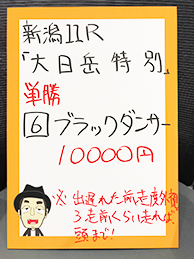 新潟11R
「大日岳特別」
単勝
6 ブラックダンサー
10000円
※出遅れた前走度外視
3走前くらい走れば、
頭まで!